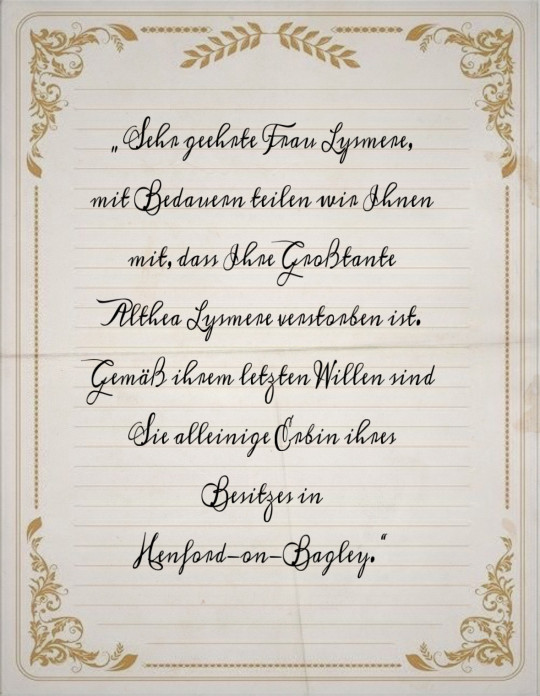 „Sehr geehrte Frau Lysmere,
mit Bedauern teilen wir Ihnen
mit, dass Ihre Großtante
Althea Lysmere verstorben ist.
Gemäß ihrem letzten Willen sind
Sie alleinige Erbin ihres
Besitzes in
Henford-on-Bagley.“